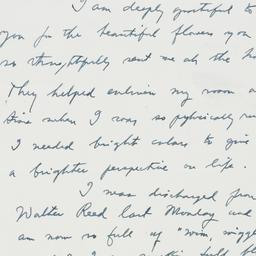 I am deeply grateful to
you for the beautiful flowers you
so thoughtfully sent me at the ho
They helped enliven my room a
time when I was so physically
I needed bright colors to give
a brighter perspective on life.
I was discharged from
Walter Reed last Monday and
am now so full of "vim,